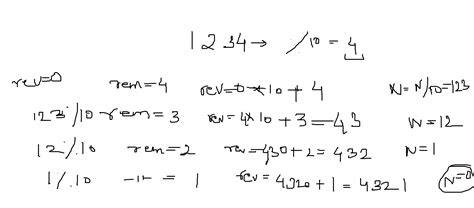 1234→ /10 = 4
rev=0 rem=4 rev=0*10+4 N=N/10=123
123%10 rem=3 rev=4*10+3=43 N=12
12%10 rem=2 rev=430+2=432 N=1
1%10 = 1 rev=4320+1=4321 N=0